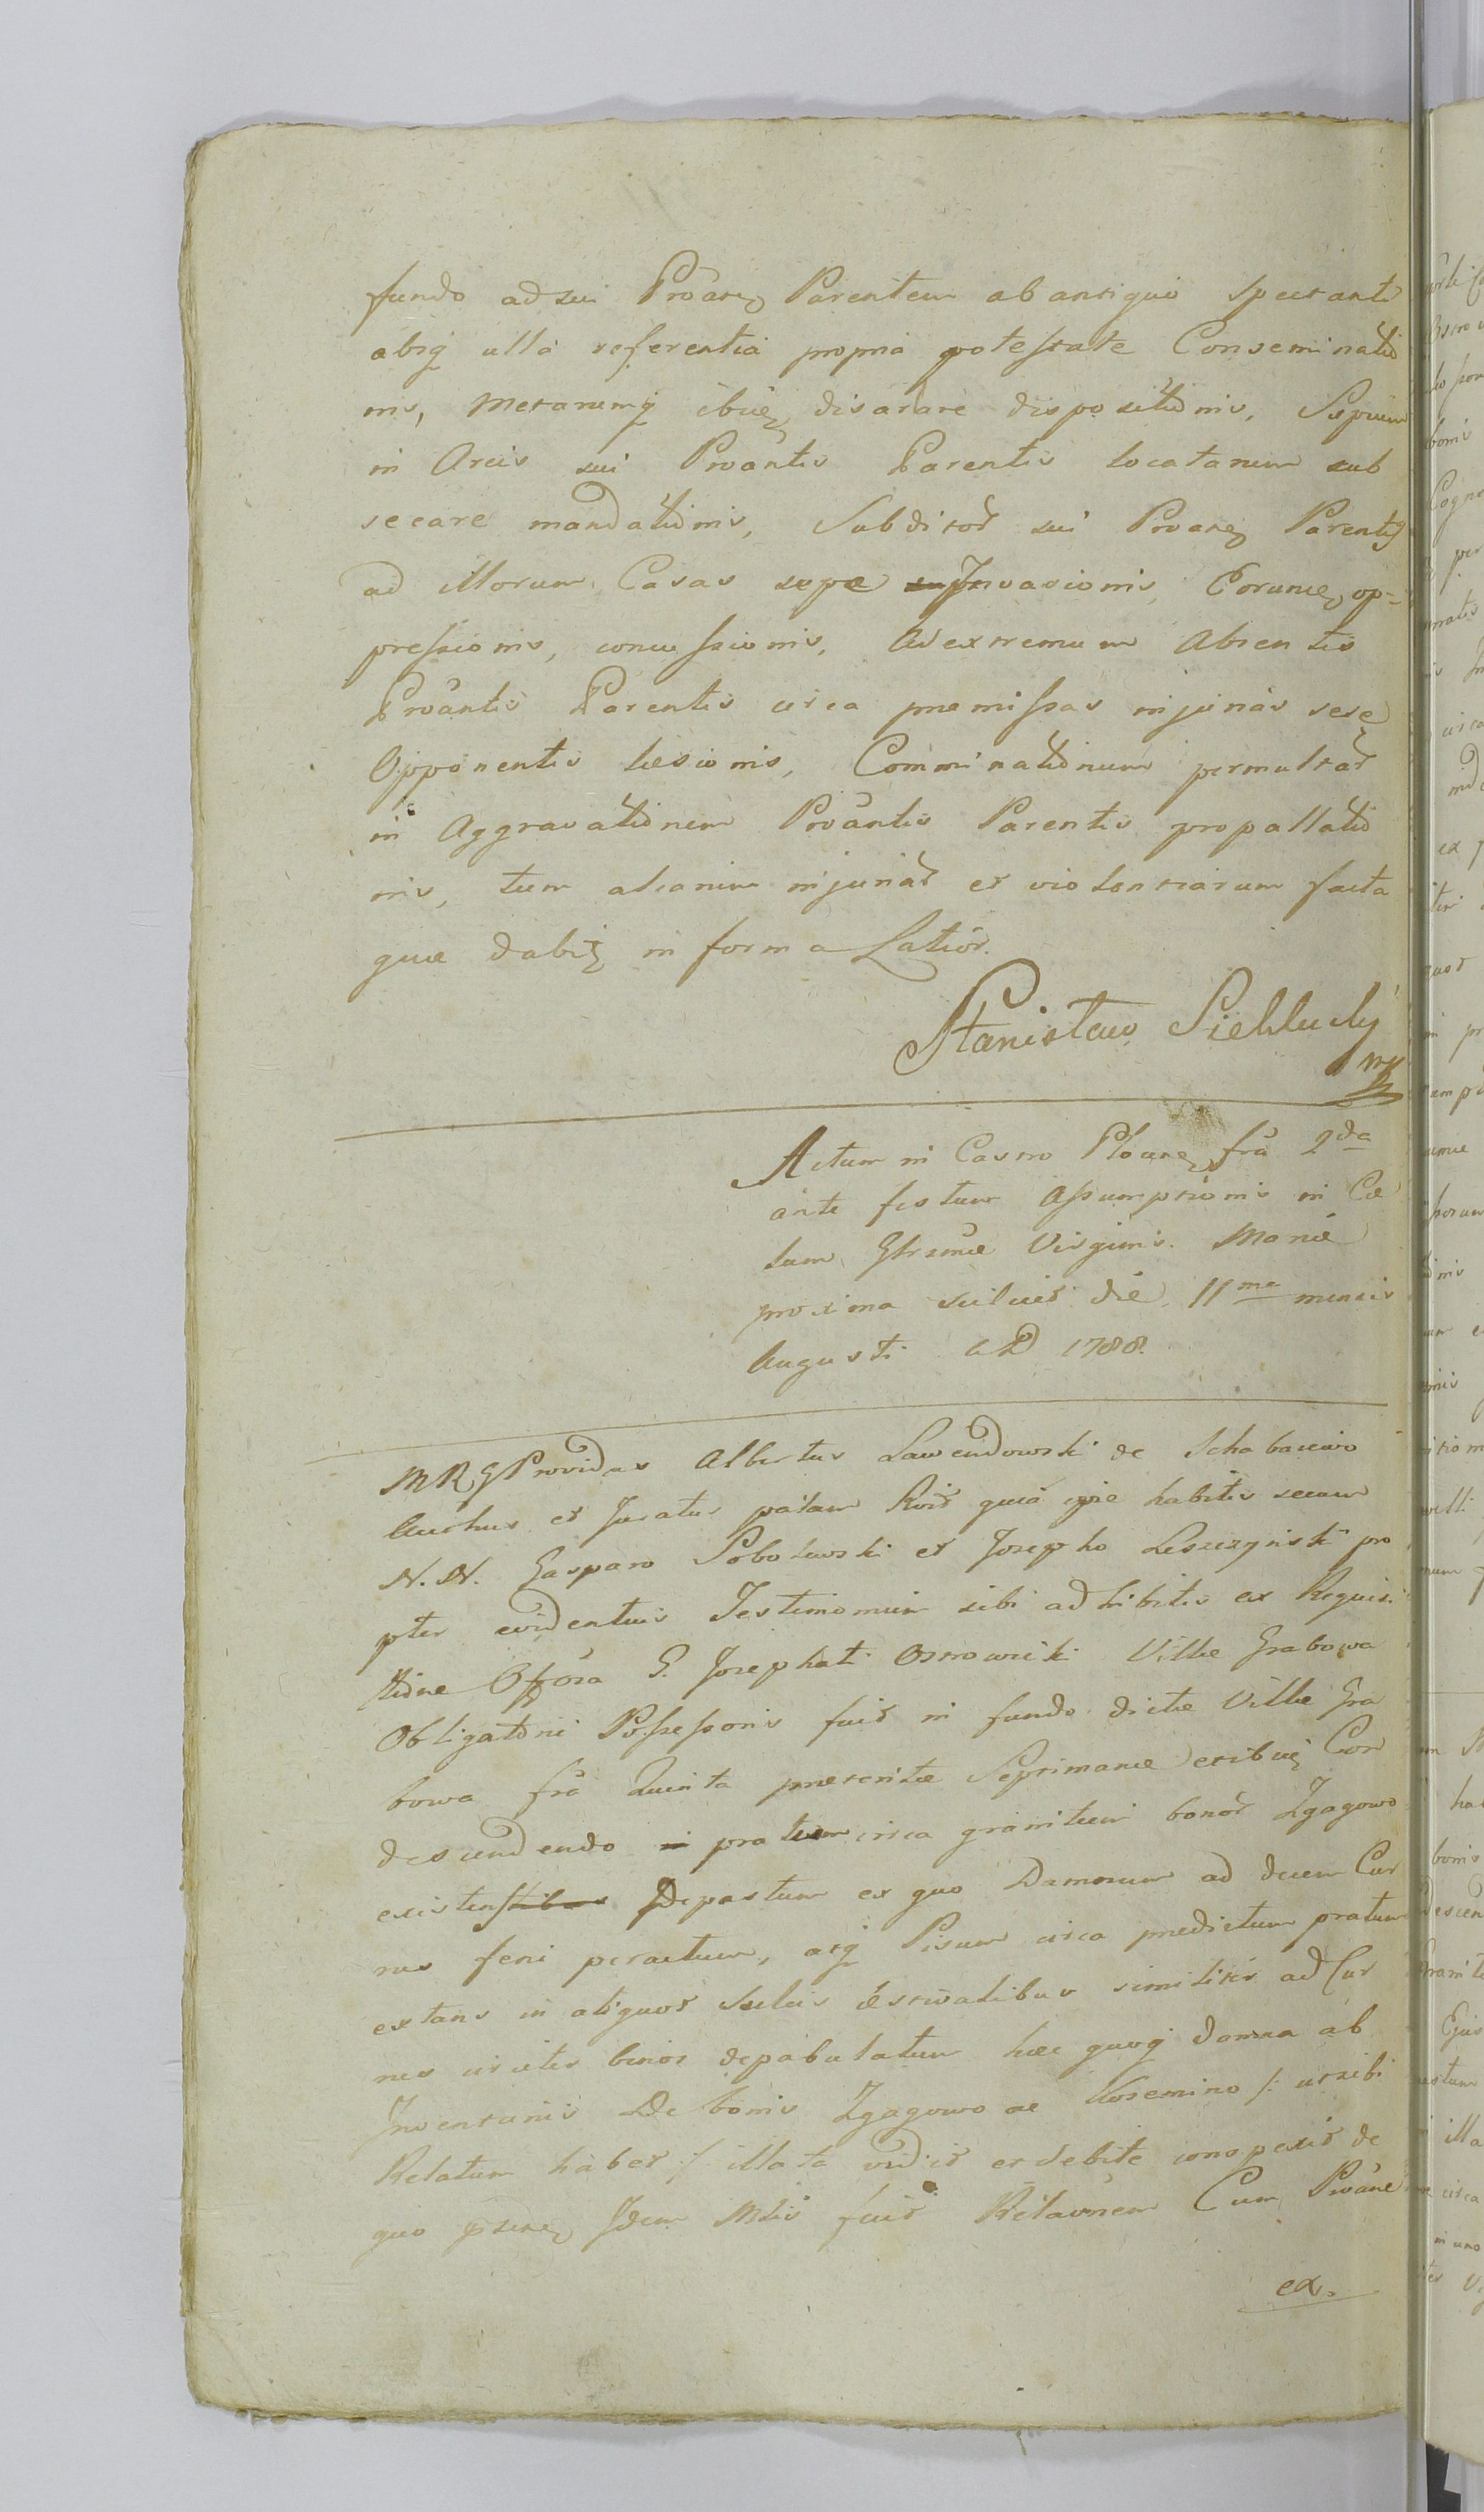 fundo ad sui Proãnt Parentem ab antiquo Spectanti
absq ulla referentia propria potestate Conseminatio
nis, Metarumq ibiq disarare dispositionis, Sepium
in Areis sui Proãntis Parentis locatarum sub
secare mandationis, Subditor sui Proãnt Parentis
ad illorum Casas sepæ Invasionis, Eorumq op-
pressionis, concussionis, Ad extremum Absentis
Proãntis Parentis circa præmissas injurias sese
Opponentis læsionis, Comminationum permultar
in Aggravationem Proãntis Parentis propallatio
nis, tum aliarum injuriar et violentiarum facta
quæ dabit in forma Latiõr.
Stanisław
mp
Actum in Castro Plocen frã 2da
ante festum Assumptionis in Cæ
lum Glrsmæ Virginis Mariæ
proxima scilicet die 11ma mensis
Augusti AD 1788.
MRG Providus Albertus Lawendowski de
et Juratus palam quia ipse habitis secum
N. N. Gasparo Sobolewski et Josepho Leszczynski pro
pter evidentius Testimonium sibi adhibitis ex Requisi
tione G. Josephati Ostrowicki Villæ Grabowa
Obligatori Possessoris fuit in fundo dictæ Villæ Gra
bowa frã Quinta præteritæ Septimanæ et ibiq Con
descendendo pratum circa granitiem bonor Zgagowo
existens Depastum ex quo Damnum ad decem Cur
rus feni peractum, atq Pisum circa prædictum pratum
extans in aliquot Sulcis æstivalibus similiter ad Cur
rus circiter binos depabulatum hæc quoq damna ab
Inventariis De bonis Zgagowo ac Kosemino /: ut sibi
Relatum habet :/ illata vidit et debite conspexit de
quo Idem fecit Relãonem Cum Proãne
ex.